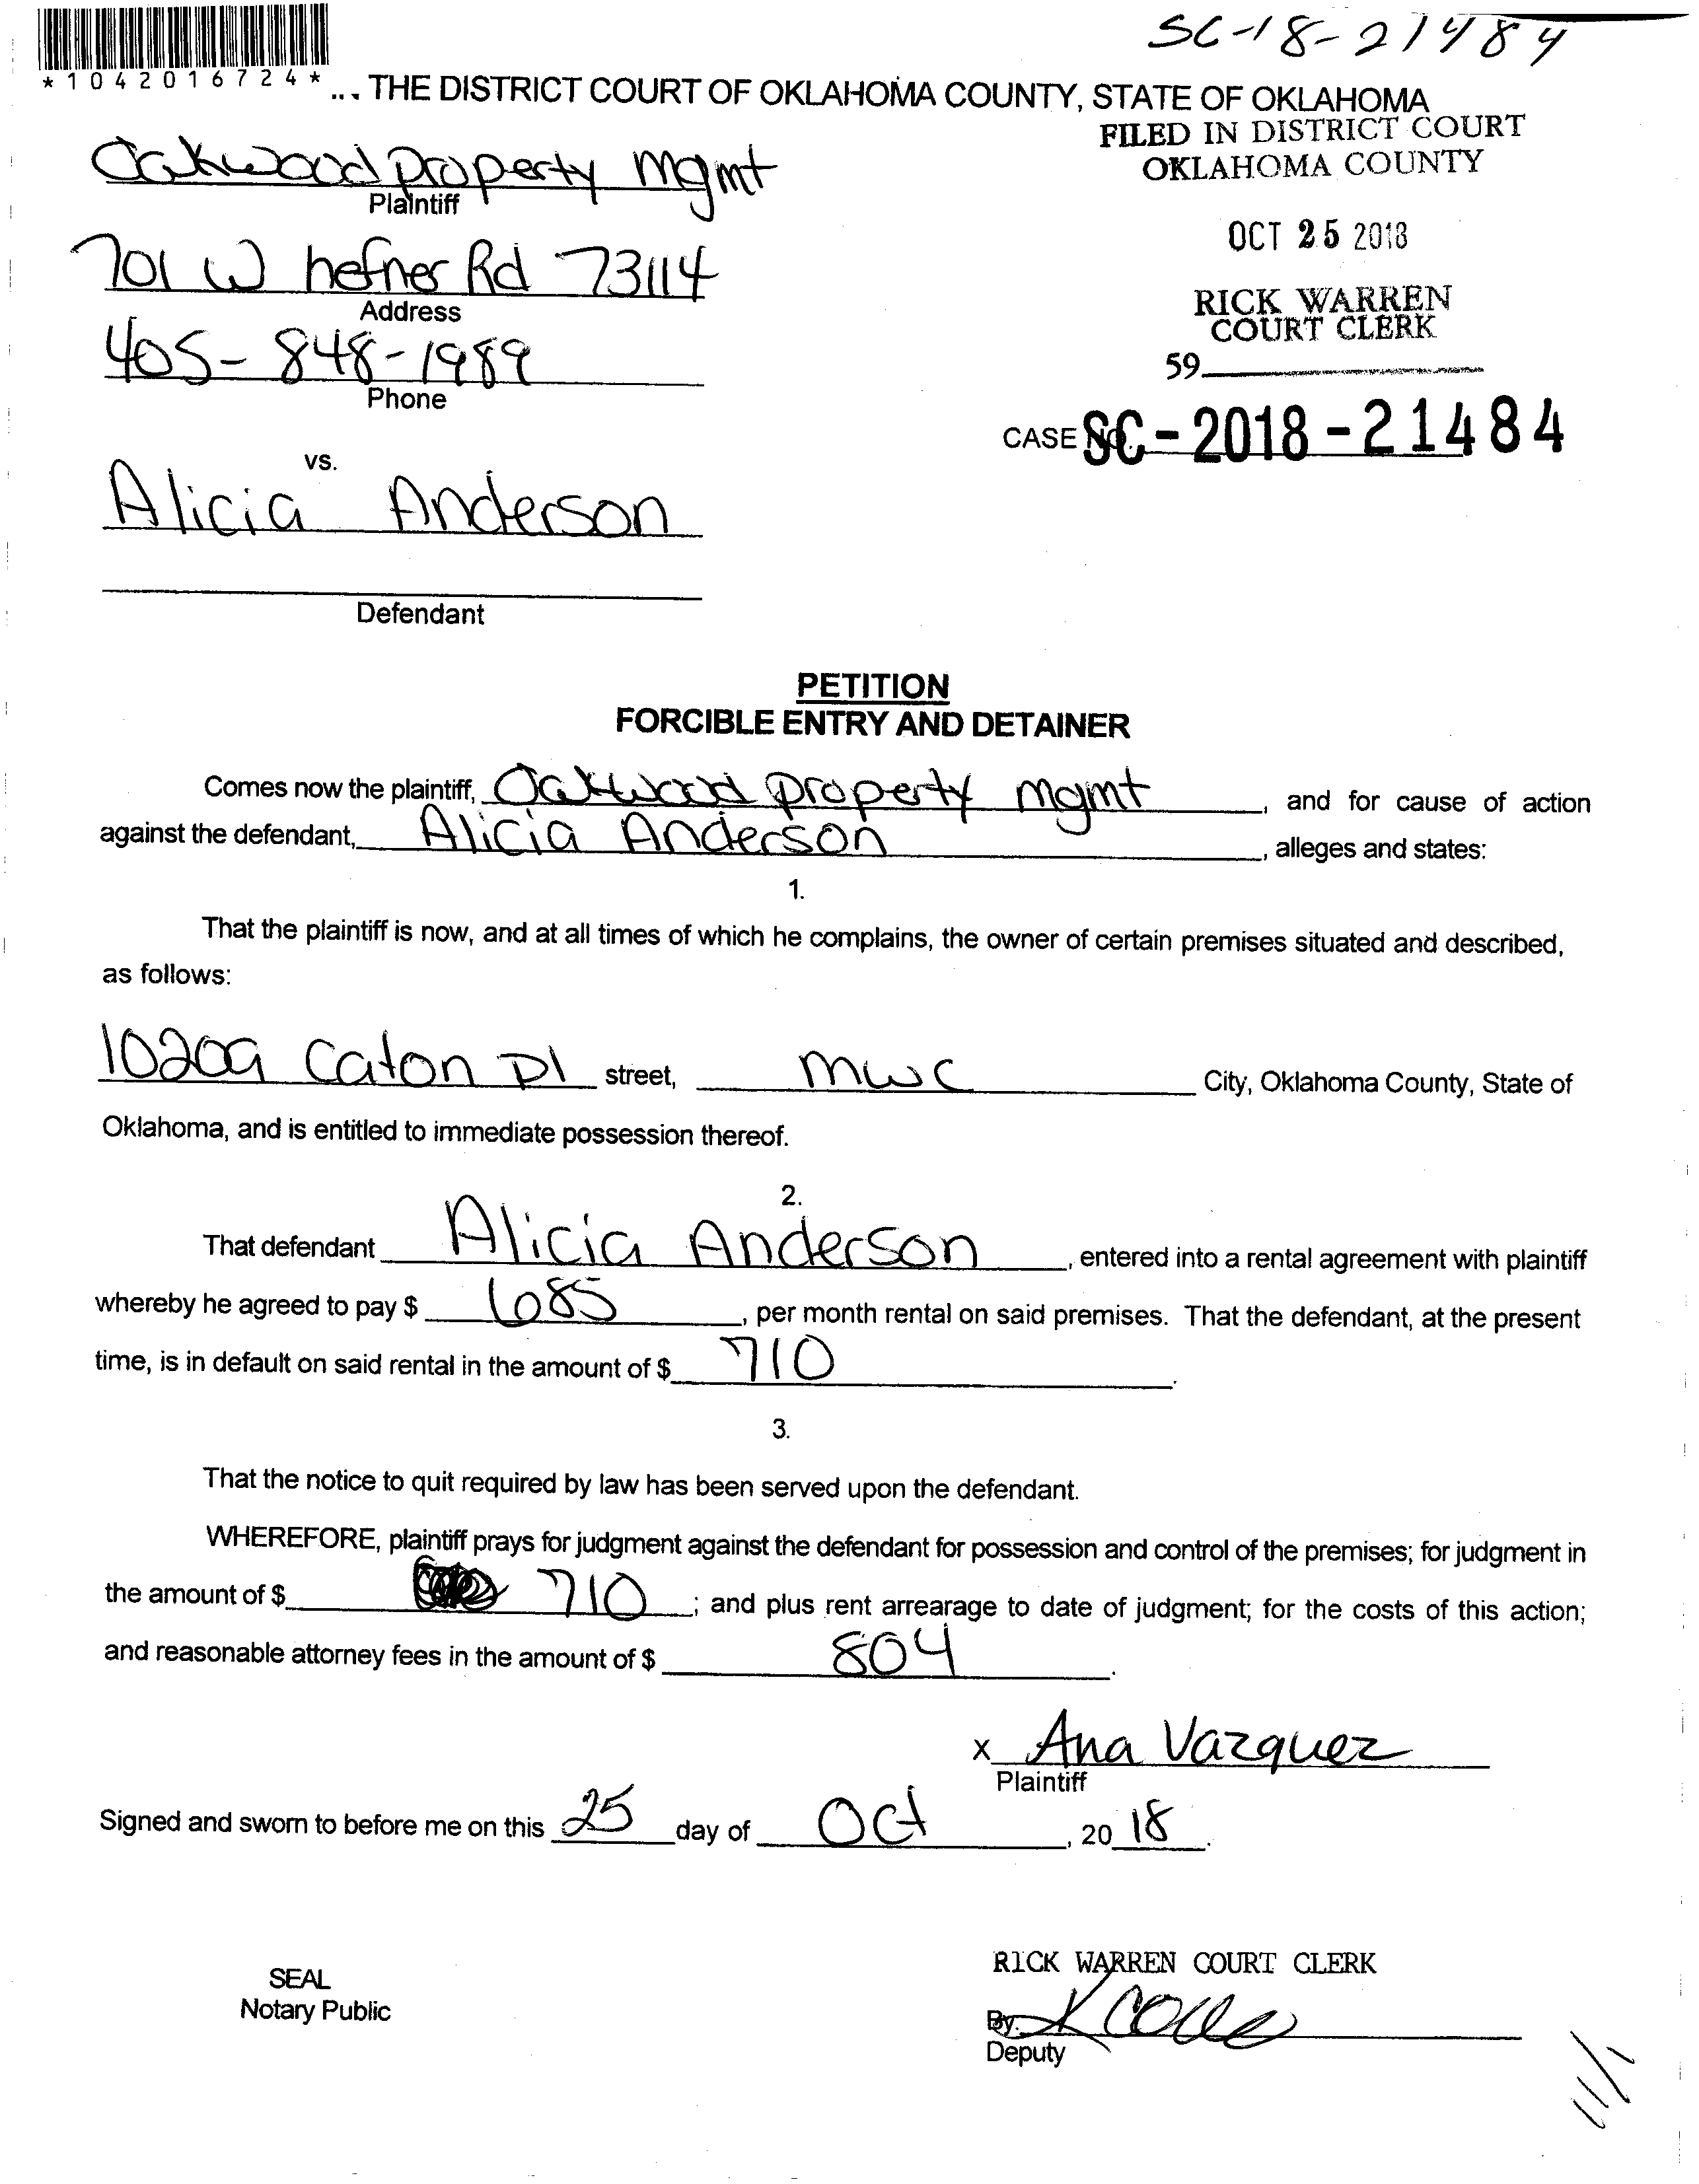 SC-18-21484
*1042016724*
... THE DISTRICT COURT OF OKLAHOMA COUNTY, STATE OF OKLAHOMA
FILED IN DISTRICT COURT
OKLAHOMA COUNTY
Oakwood Property Mgmt
Plaintiff
OCT 25 2018
701 W hefner Rd 73114
Address
RICK WARREN
COURT CLERK
405-848-1989
Phone
59
CASE No. SC-2018-21484
vs.
Alicia Anderson
Defendant
PETITION
FORCIBLE ENTRY AND DETAINER
Comes now the plaintiff, Oakwood Property Mgmt, and for cause of action
against the defendant, Alicia Anderson, alleges and states:
1.
That the plaintiff is now, and at all times of which he complains, the owner of certain premises situated and described,
as follows:
10209 Caton Pl street, MWC City, Oklahoma County, State of
Oklahoma, and is entitled to immediate possession thereof.
2.
That defendant Alicia Anderson, entered into a rental agreement with plaintiff
whereby he agreed to pay $ 685, per month rental on said premises. That the defendant, at the present
time, is in default on said rental in the amount of $ 710.
3.
That the notice to quit required by law has been served upon the defendant.
WHEREFORE, plaintiff prays for judgment against the defendant for possession and control of the premises; for judgment in
the amount of $ 710; and plus rent arrearage to date of judgment; for the costs of this action;
and reasonable attorney fees in the amount of $ 804.
x Ana Vazquez
Plaintiff
Signed and sworn to before me on this 25 day of Oct, 20 18.
RICK WARREN COURT CLERK
SEAL
Notary Public
By:
Deputy
11/1